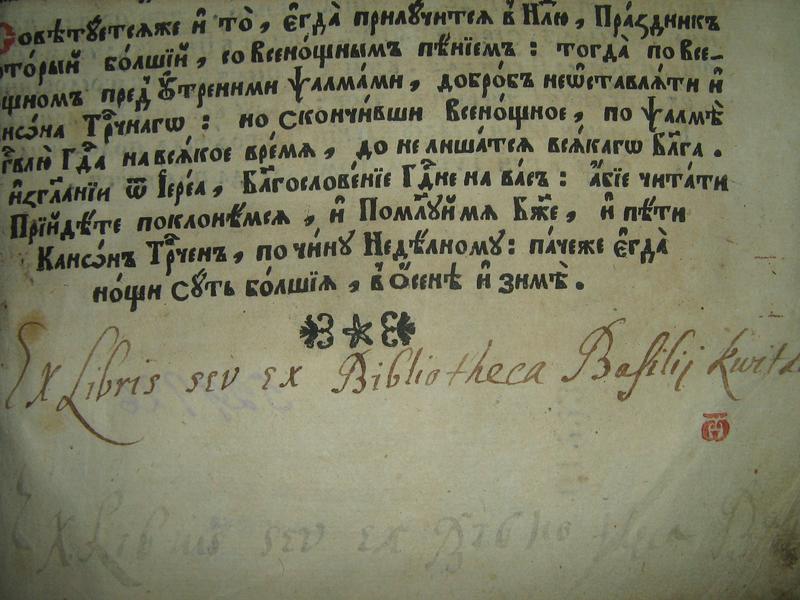 Совѣтꙋетсѧже и҆ то̀, є҆гда̀ прилꙋ́читсѧ в̾ Нл҃ю, Пра́здникъ
кото́рый бо́лшїй, со Всено́щнымъ пѣ́нїемъ : тогда̀ по Все-
щномъ пред̾ Оу҆́тренними Ѱалма́ми, добро́ѣ не ѡ҆ставлѧ́ти и҆
Кано́на Трⷪ҇чнагѡ : но скончи́вши Всено́щное, по Ѱалмѣ̀
Бл҃гвлю̀ Гдⷭ҇а на всѧ́кое вре́мѧ, до не лиша́тсѧ всѧ́кагѡ Бл҃га .
и҆ возгл҃а́нїи ѿ І҆ере́а, Бл҃гослове́нїе Гдⷭ҇не на ва́съ : а҆́бїе чита́ти
Прїйдѣ́те поклонѣ́мсѧ, и҆ Поми́лꙋй мѧ Бж҃е, и҆ пѣ́ти
Канѡ́нъ Трⷪ҇ченъ, по чи́нꙋ Недѣ́лномꙋ : па́чеже є҆гда̀
но́щи сꙋ́ть бо́лшїѧ, в̾ О҆́сенѣ и҆ зимѣ̀ .
Ex Libris seu ex Bibliotheca Basilij Kwitk
ѿ
Ex Libris seu ex Biblio